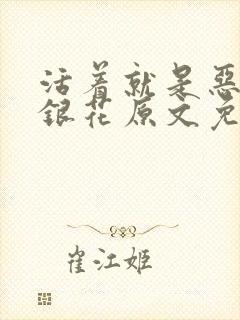 活着就是恶
银花原文免
崔江姬